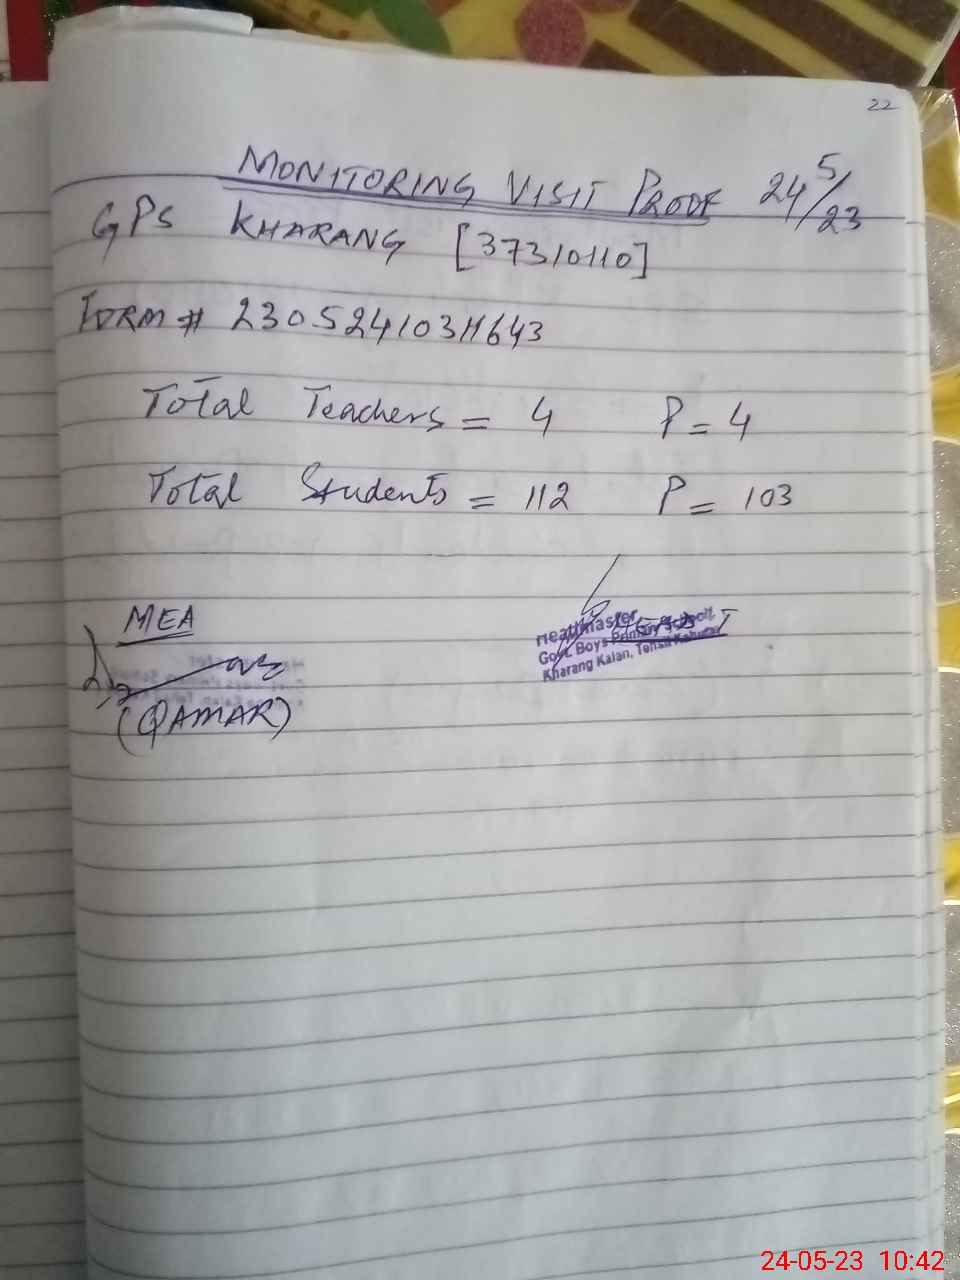 22
MONITORING VISIT PROOF 24/5/23
GPS KHARANG [37310110]
FORM # 23052410311643
Total Teachers = 4 P = 4
Total Students = 112 P = 103
MEA
(QAMAR)
Headmaster
Govt. Boys Primary School,
Kharang Kalan, Tehsil
24-05-23 10:42